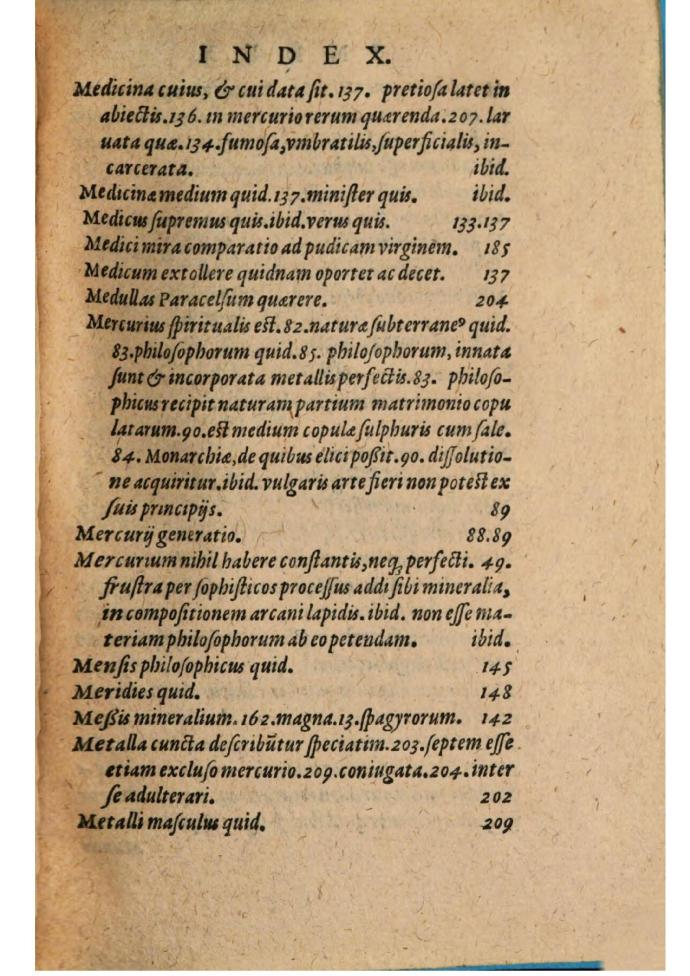 INDEX.
Medicina cuius, & cui data ſit. 137. pretioſa latet in
abiectis. 136. in mercurio rerum quærenda. 207. lar
uata quæ. 134. fumoſa, vmbratilis, ſuperficialis, in-
carcerata. ibid.
Medicinæ medium quid. 137. miniſter quis. ibid.
Medicus ſupremus quis. ibid. verus quis. 133.137
Medici mira comparatio ad pudicam virginem. 185
Medicum extollere quidnam oportet ac decet. 137
Medullas Paracelſum quærere. 204
Mercurius ſpiritualis est. 82. naturæ ſubterraneꝰ quid.
83. philoſophorum quid. 85. philoſophorum, innata
ſunt & incorporata metallis perfectis. 83. philoſo-
phicus recipit naturam partium matrimonio copu
latarum. 90. est medium copulæ ſulphuris cum ſale.
84. Monarchiæ, de quibus elici poßit. 90. diſſolutio-
ne acquiritur. ibid. vulgaris arte fieri non potest ex
ſuis principijs. 89
Mercurij generatio. 88.89
Mercurium nihil habere conſtantis, neq; perfecti. 49.
fruſtra per ſophiſticos proceſſus addi ſibi mineralia,
in compoſitionem arcani lapidis. ibid. non eſſe ma-
teriam philoſophorum ab eo petendam. ibid.
Menſis philoſophicus quid. 145
Meridies quid. 148
Meßis mineralium. 162. magna. 13. ſpagyrorum. 142
Metalla cuncta deſcribũtur ſpeciatim. 203. ſeptem eſſe
etiam excluſo mercurio. 209. coniugata. 204. inter
ſe adulterari. 202
Metalli maſculus quid. 209